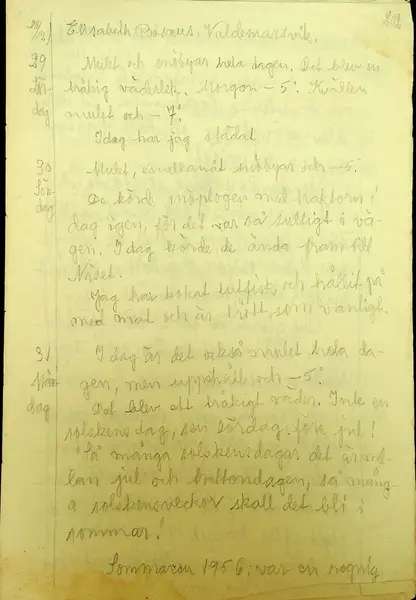 212
29/12 Elisabeth Valdemarsvik.
29 Mulet och snöbyar hela dagen. Det blev en
Lör- tråkig väderlek. Morgon -5°. Kvällen
dag mulet och -7°.
Idag har jag städat
30 Mulet, emellanåt snöbyar och -5°.
Sön- De körde snöplogen med traktorn i
dag dag igen, för det var så
gen. I dag körde de ända fram till
Näset.
Jag har kokat lutfisk, och hållit på
med mat och är trött, som vanligt.
31 I dag är det också mulet hela da-
Mån gen, men uppehåll och -5°.
dag Det blev ett tråkigt väder. Inte en
solskens dag, sen söndag. före jul!
"Så många solskensdagar det är mel-
lan jul och trettondagen, så mång-
a solskensveckor skall det bli i
sommar."
Sommaren 1956, var en regnig